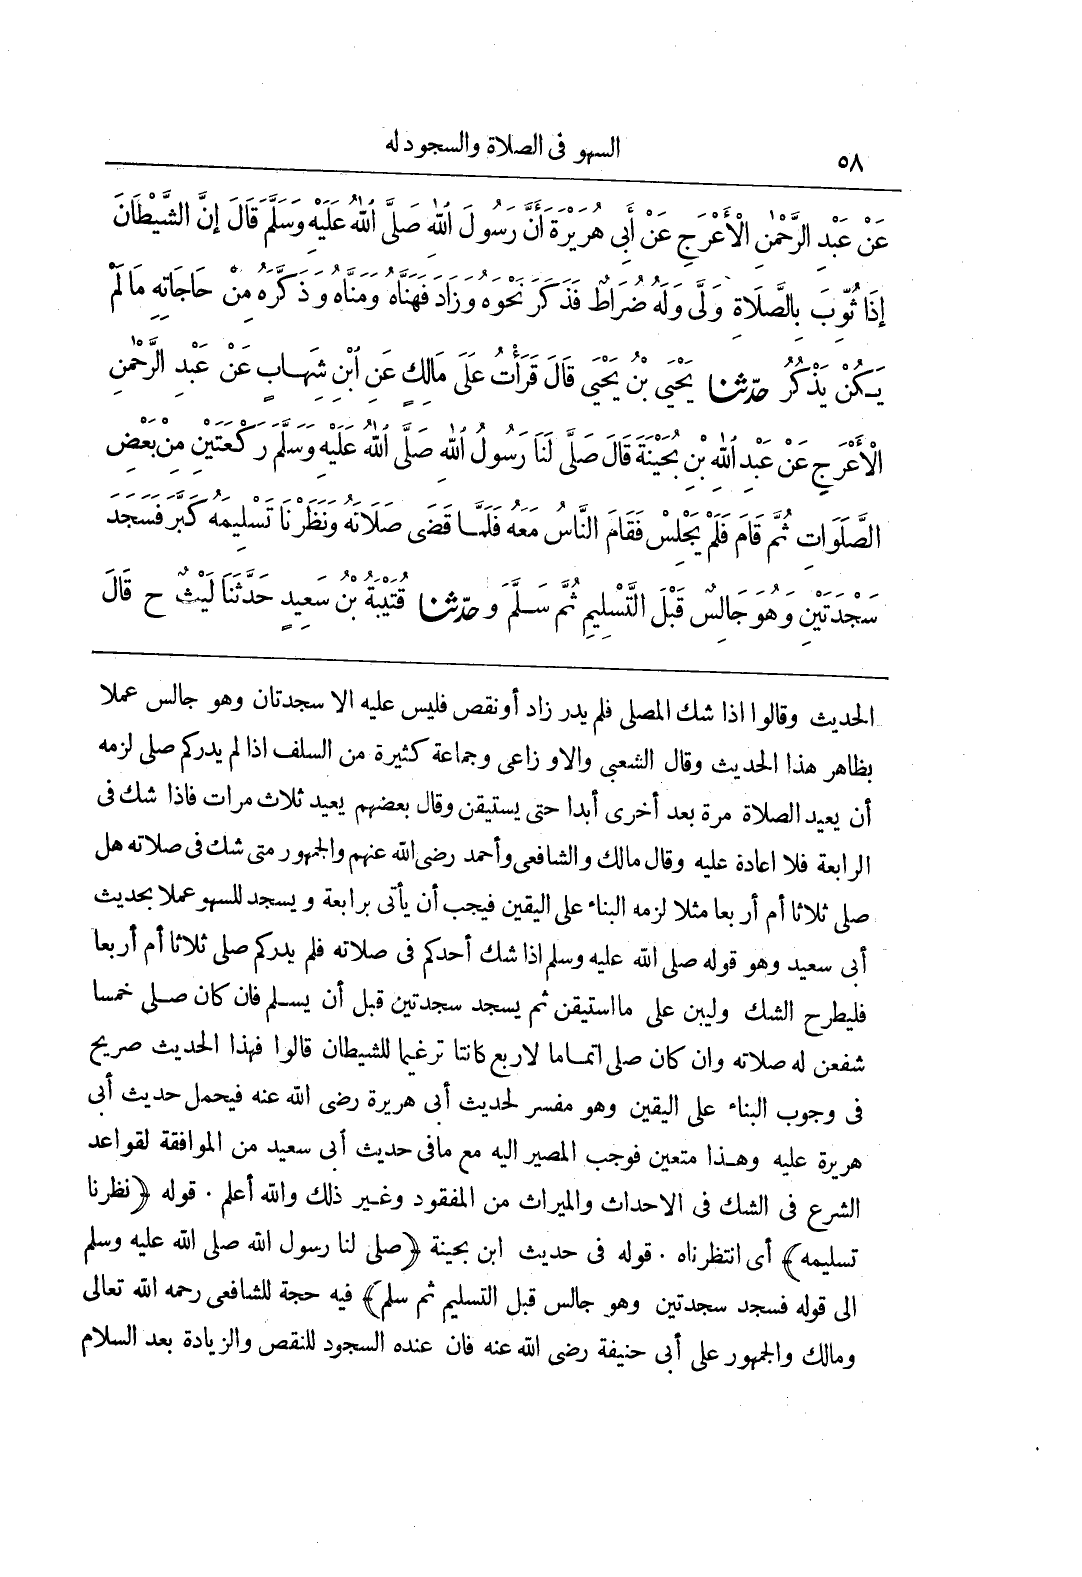 ٥٨
السهو فى الصلاة والسجود له
عَنْ عَبْدِ الرَّحْمٰنِ الْأَعْرَجِ عَنْ أَبِى هُرَيْرَةَ أَنَّ رَسُولَ اللهِ صَلَّى اللهُ عَلَيْهِ وَسَلَّمَ قَالَ إِنَّ الشَّيْطَانَ
إِذَا ثُوِّبَ بِالصَّلَاةِ وَلَّى وَلَهُ ضُرَاطٌ فَذَكَرَ نَحْوَهُ وَزَادَ فَهَنَّاهُ وَمَنَّاهُ وَذَكَّرَهُ مِنْ حَاجَاتِهِ مَا لَمْ
يَكُنْ يَذْكُرُ حدّثنا يَحْيَى بْنُ يَحْيَى قَالَ قَرَأْتُ عَلَى مَالِكٍ عَنِ ابْنِ شِهَابٍ عَنْ عَبْدِ الرَّحْمٰنِ
الْأَعْرَجِ عَنْ عَبْدِ اللهِ بْنِ بُحَيْنَةَ قَالَ صَلَّى لَنَا رَسُولُ اللهِ صَلَّى اللهُ عَلَيْهِ وَسَلَّمَ رَكْعَتَيْنِ مِنْ بَعْضِ
الصَّلَوَاتِ ثُمَّ قَامَ فَلَمْ يَجْلِسْ فَقَامَ النَّاسُ مَعَهُ فَلَمَّا قَضَى صَلَاتَهُ وَنَظَرْنَا تَسْلِيمَهُ كَبَّرَ فَسَجَدَ
سَجْدَتَيْنِ وَهُوَ جَالِسٌ قَبْلَ التَّسْلِيمِ ثُمَّ سَلَّمَ و حدّثنا قُتَيْبَةُ بْنُ سَعِيدٍ حَدَّثَنَا لَيْثٌ ح قَالَ
الحديث وقالوا اذا شك المصلى فلم يدر زاد أو نقص فليس عليه الا سجدتان وهو جالس عملا
بظاهر هذا الحديث وقال الشعبى والاوزاعى وجماعة كثيرة من السلف اذا لم يدركم صلى لزمه
أن يعيد الصلاة مرة بعد أخرى أبدا حتى يستيقن وقال بعضهم يعيد ثلاث مرات فاذا شك فى
الرابعة فلا اعادة عليه وقال مالك والشافعى وأحمد رضى الله عنهم والجمهور متى شك فى صلاته هل
صلى ثلاثا أم أربعا مثلا لزمه البناء على اليقين فيجب أن يأتى برابعة ويسجد للسهو عملا بحديث
أبى سعيد وهو قوله صلى الله عليه وسلم اذا شك أحدكم فى صلاته فلم يدركم صلى ثلاثا أم أربعا
فليطرح الشك وليبن على ما استيقن ثم يسجد سجدتين قبل أن يسلم فان كان صلى خمسا
شفعن له صلاته وان كان صلى اتماما لاربع كانتا ترغيما للشيطان قالوا فهذا الحديث صريح
فى وجوب البناء على اليقين وهو مفسر لحديث أبى هريرة رضى الله عنه فيحمل حديث أبى
هريرة عليه وهذا متعين فوجب المصير اليه مع مافى حديث أبى سعيد من الموافقة لقواعد
الشرع فى الشك فى الاحداث والميراث من المفقود وغير ذلك والله أعلم . قوله ﴿نظرنا
تسليمه﴾ أى انتظرناه . قوله فى حديث ابن بحينة ﴿صلى لنا رسول الله صلى الله عليه وسلم
الى قوله فسجد سجدتين وهو جالس قبل التسليم ثم سلم﴾ فيه حجة للشافعى رحمه الله تعالى
ومالك والجمهور على أبى حنيفة رضى الله عنه فان عنده السجود للنقص والزيادة بعد السلام